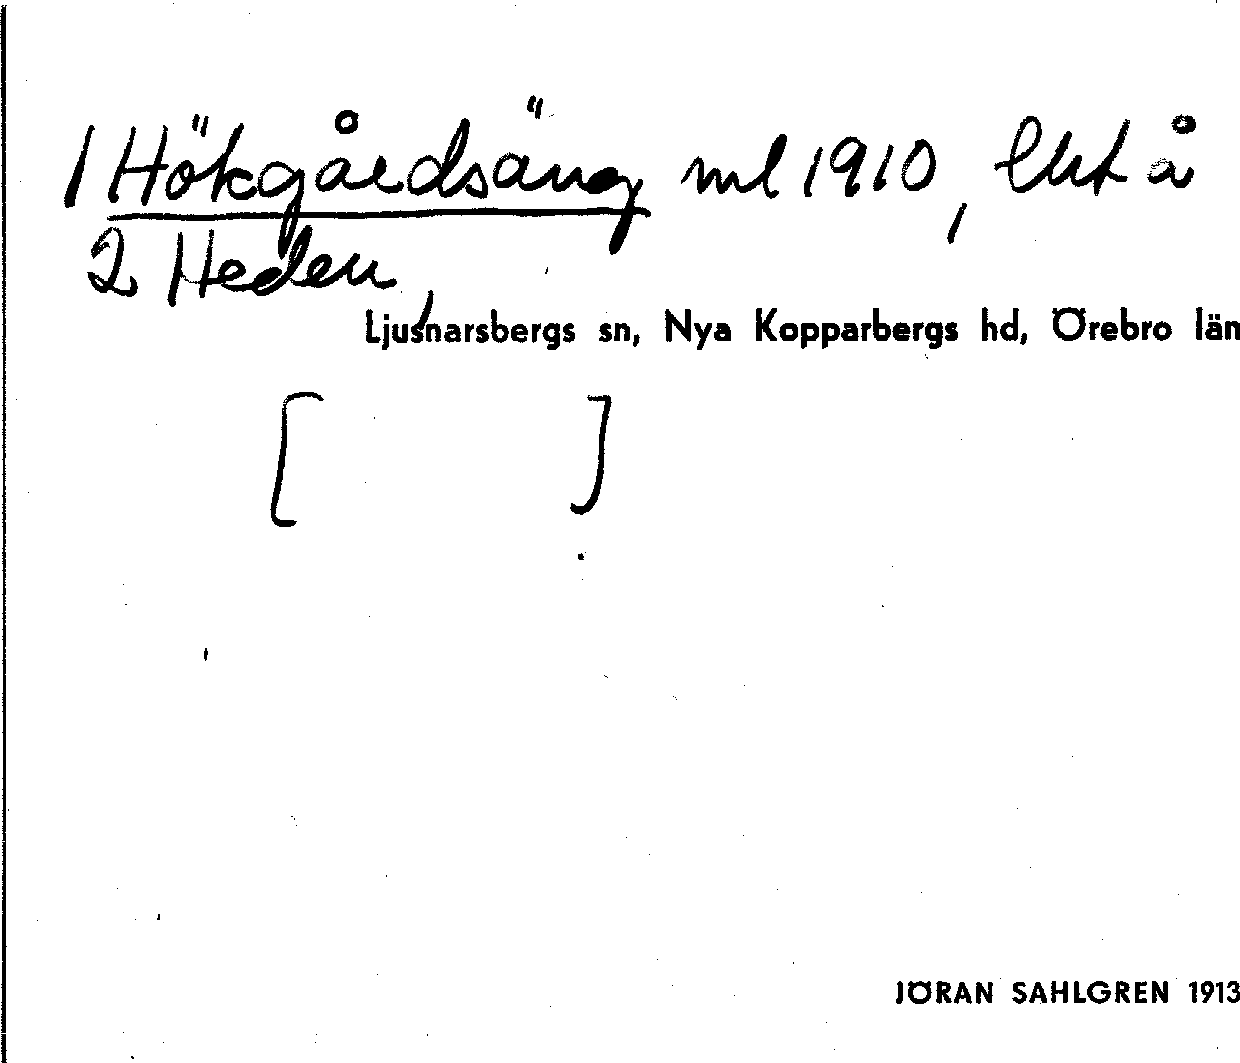 1 Hökgårdsäng ml 1910, Ekt å
2 Heden,
Ljusnarsbergs sn, Nya Kopparbergs hd, Örebro län
[ ]
JÖRAN SAHLGREN 1913